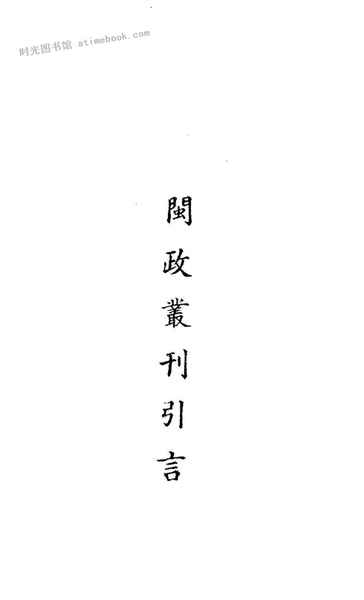 时光图书馆 atimebook.com
閩政叢刊引言